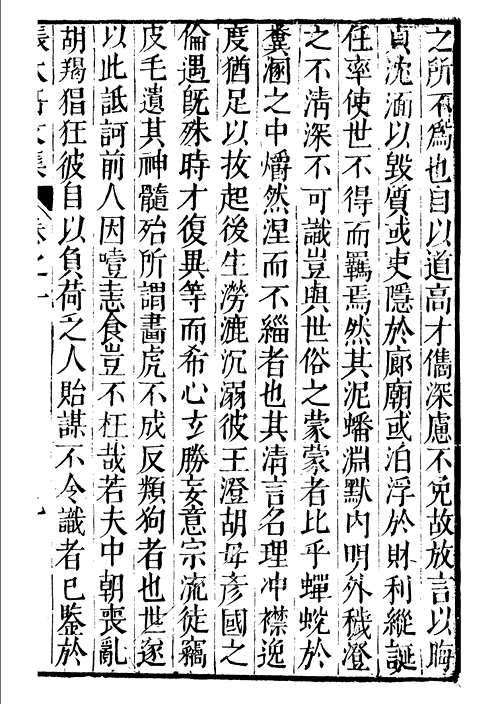 之所不爲也自以道高才儁深慮不免故放言以晦
貞沈湎以毀質或吏隱於廊廟或泊浮於財利縱誕
任率使世不得而羈焉然其泥蟠淵默内明外穢澄
之不淸深不可識豈與世俗之蒙蒙者比乎蟬蛻於
糞溷之中皭然涅而不緇者也其清言名理冲襟逸
度猶足以扳起後生澇漉沉溺彼王澄胡毋彥國之
倫遇旣殊時才復異等而希心玄勝妄意宗流徒竊
皮毛遺其神髓殆所謂畫虎不成反類狗者也世遂
以此詆訶前人因噎恚食豈不枉哉若夫中朝喪亂
胡羯猖狂彼自以負荷乏人貽謀不令識者已鑒於
卷之十
九